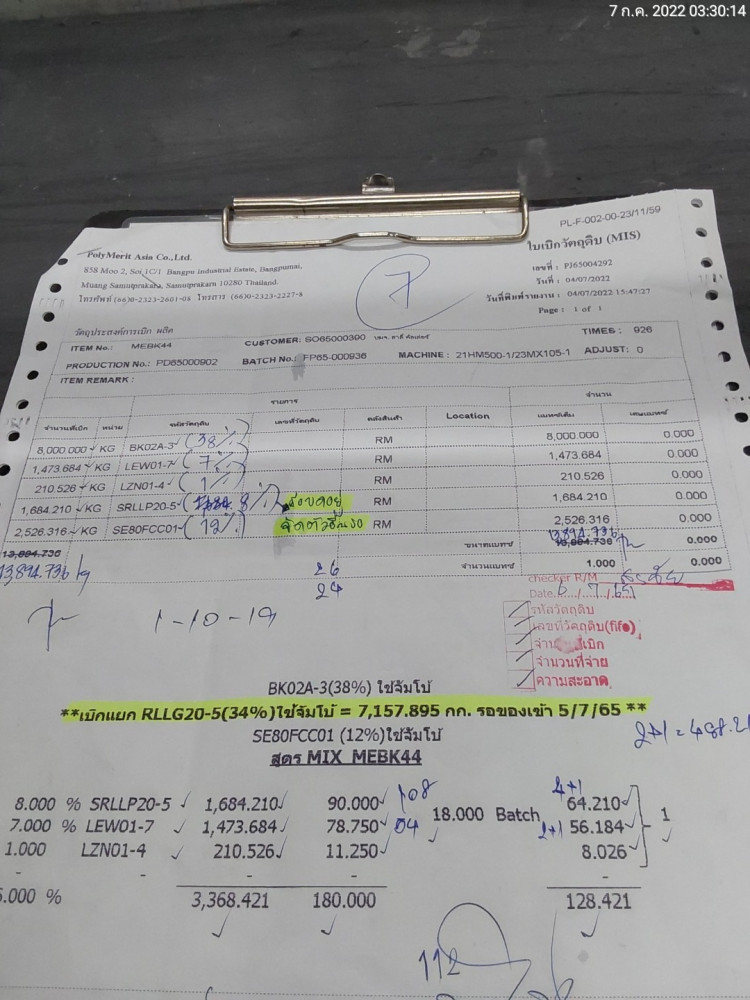 7 ก.ค. 2022 03:30:14
PL-F-002-00-23/11/59
ใบเบิกวัตถุดิบ (MIS)
PolyMerit Asia Co.,Ltd.
858 Moo 2, Soi 1C/1 Bangpu Industrial Estate, Bangpumai,
Muang Samutprakarn, Samutprakarn 10280 Thailand.
โทรศัพท์ (66)0-2323-2601-08 โทรสาร (66)0-2323-2227-8
เลขที่ : PJ65004292
วันที่ : 04/07/2022
วันที่พิมพ์รายงาน : 04/07/2022 15:47:27
Page : 1 of 1
7
วัตถุประสงค์การเบิก ผลิต
ITEM No.: MEBK44 CUSTOMER: SO65000390 TIMES : 926
PRODUCTION No.: PD65000902 BATCH No.: FP65-000936 MACHINE : 21HM500-1/23MX105-1 ADJUST: 0
ITEM REMARK :
รายการ จำนวน
จำนวนที่เบิก หน่วย รหัสวัตถุดิบ เลขที่วัตถุดิบ คลังสินค้า Location แบทช์เต็ม เศษแบทช์
8,000.000 KG BK02A-3 (38%) RM 8,000.000 0.000
1,473.684 KG LEW01-7 (7%) RM 1,473.684 0.000
210.526 KG LZN01-4 (1%) RM 210.526 0.000
1,684.210 KG SRLLP20-5 (8%) RM 1,684.210 0.000
2,526.316 KG SE80FCC01 (12%) RM 2,526.316 0.000
13,894.736 ขนาดแบทช์ 13,894.736 13,894.736 0.000
13,894.736 kg จำนวนแบทช์ 1.000 0.000
26
24
1-10-19
checker R/M
Date
รหัสวัตถุดิบ
เลขที่วัตถุดิบ(fifo)
จำนวนที่เบิก
จำนวนที่จ่าย
ความสะอาด
BK02A-3(38%) ใช้จัมโบ้
**เบิกแยก RLLG20-5(34%)ใช้จัมโบ้ = 7,157.895 กก. รอของเข้า 5/7/65 **
SE80FCC01 (12%)ใช้จัมโบ้
สูตร MIX MEBK44
8.000 % SRLLP20-5 1,684.210 90.000 108 4+1 64.210
7.000 % LEW01-7 1,473.684 78.750 18.000 Batch 2+1 56.184 1
1.000 LZN01-4 210.526 11.250 8.026
- - - -
.000 % 3,368.421 180.000 128.421
112